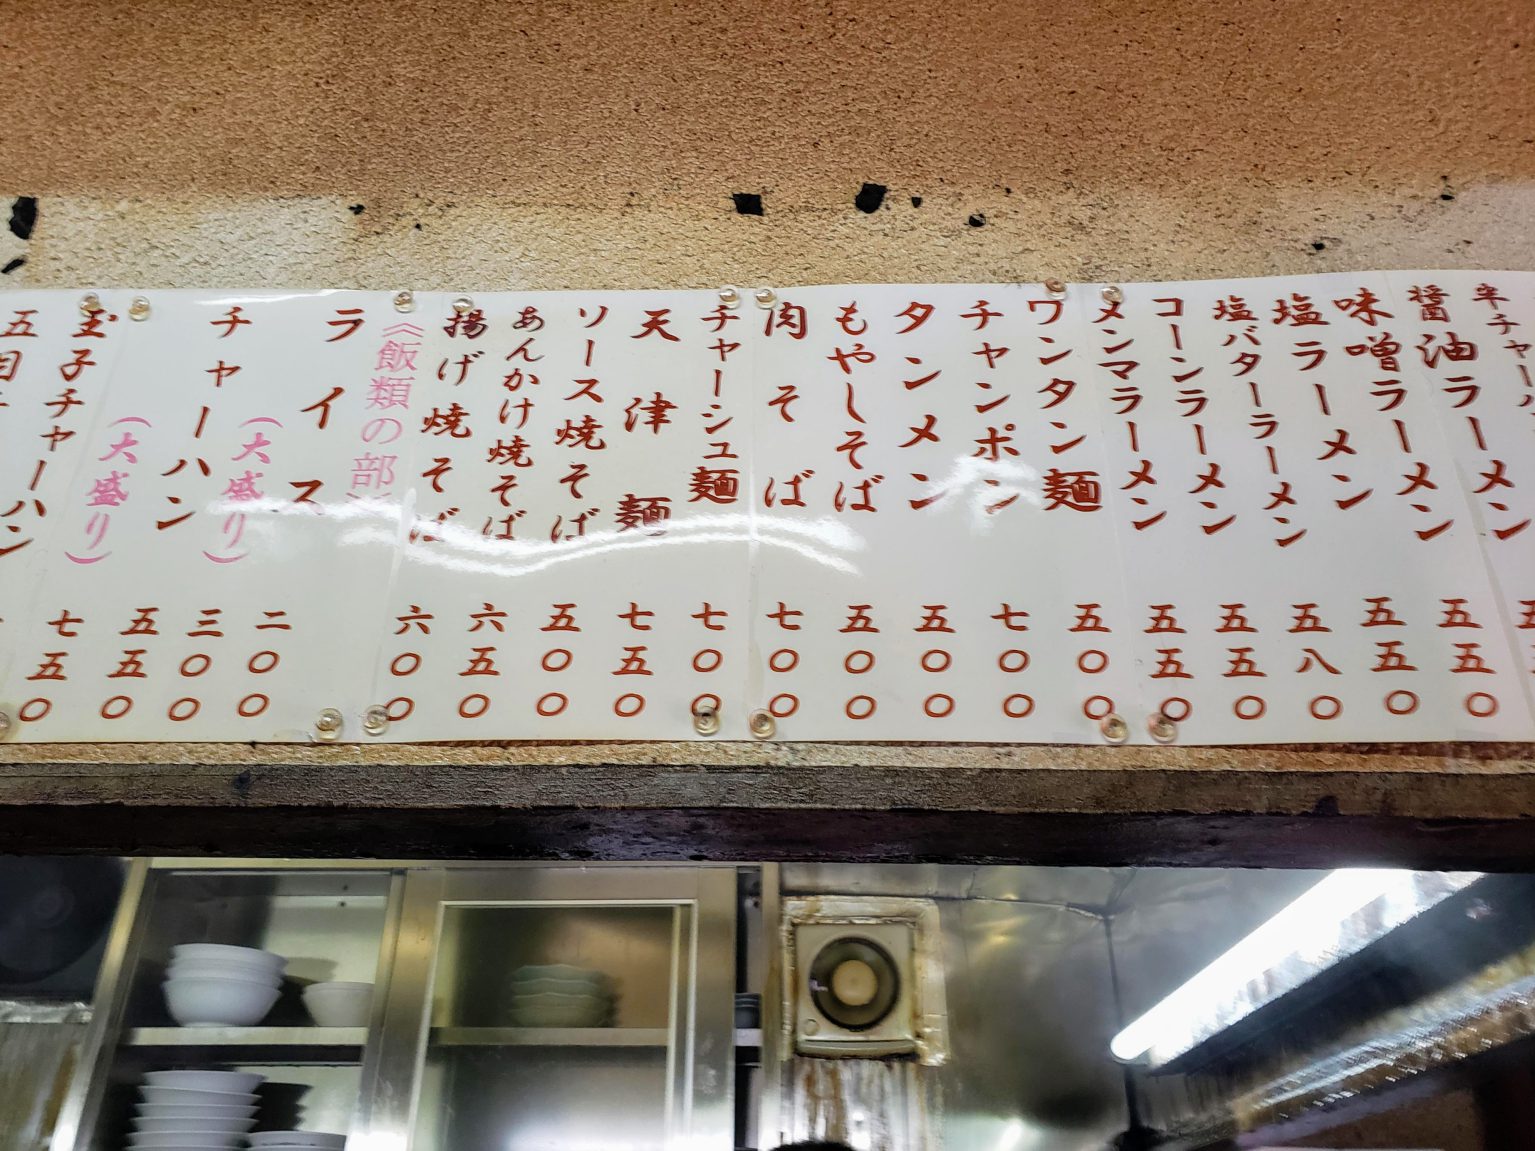 醤油ラーメン
味噌ラーメン 五五〇
塩ラーメン 五五〇
塩バターラーメン 五八〇
コーンラーメン 五五〇
メンマラーメン 五五〇
ワンタン麺 五〇〇
チャンポン 七〇〇
タンメン 五〇〇
もやしそば 五〇〇
肉そば 七〇〇
チャーシュ麺 七〇〇
天津麺 七五〇
ソース焼そば 五〇〇
あんかけ焼そば 六五〇
揚げ焼そば 六〇〇
《飯類の部》
ライス 二〇〇
(大盛り) 三〇〇
チャーハン 五五〇
(大盛り) 七五〇
玉子チャーハン